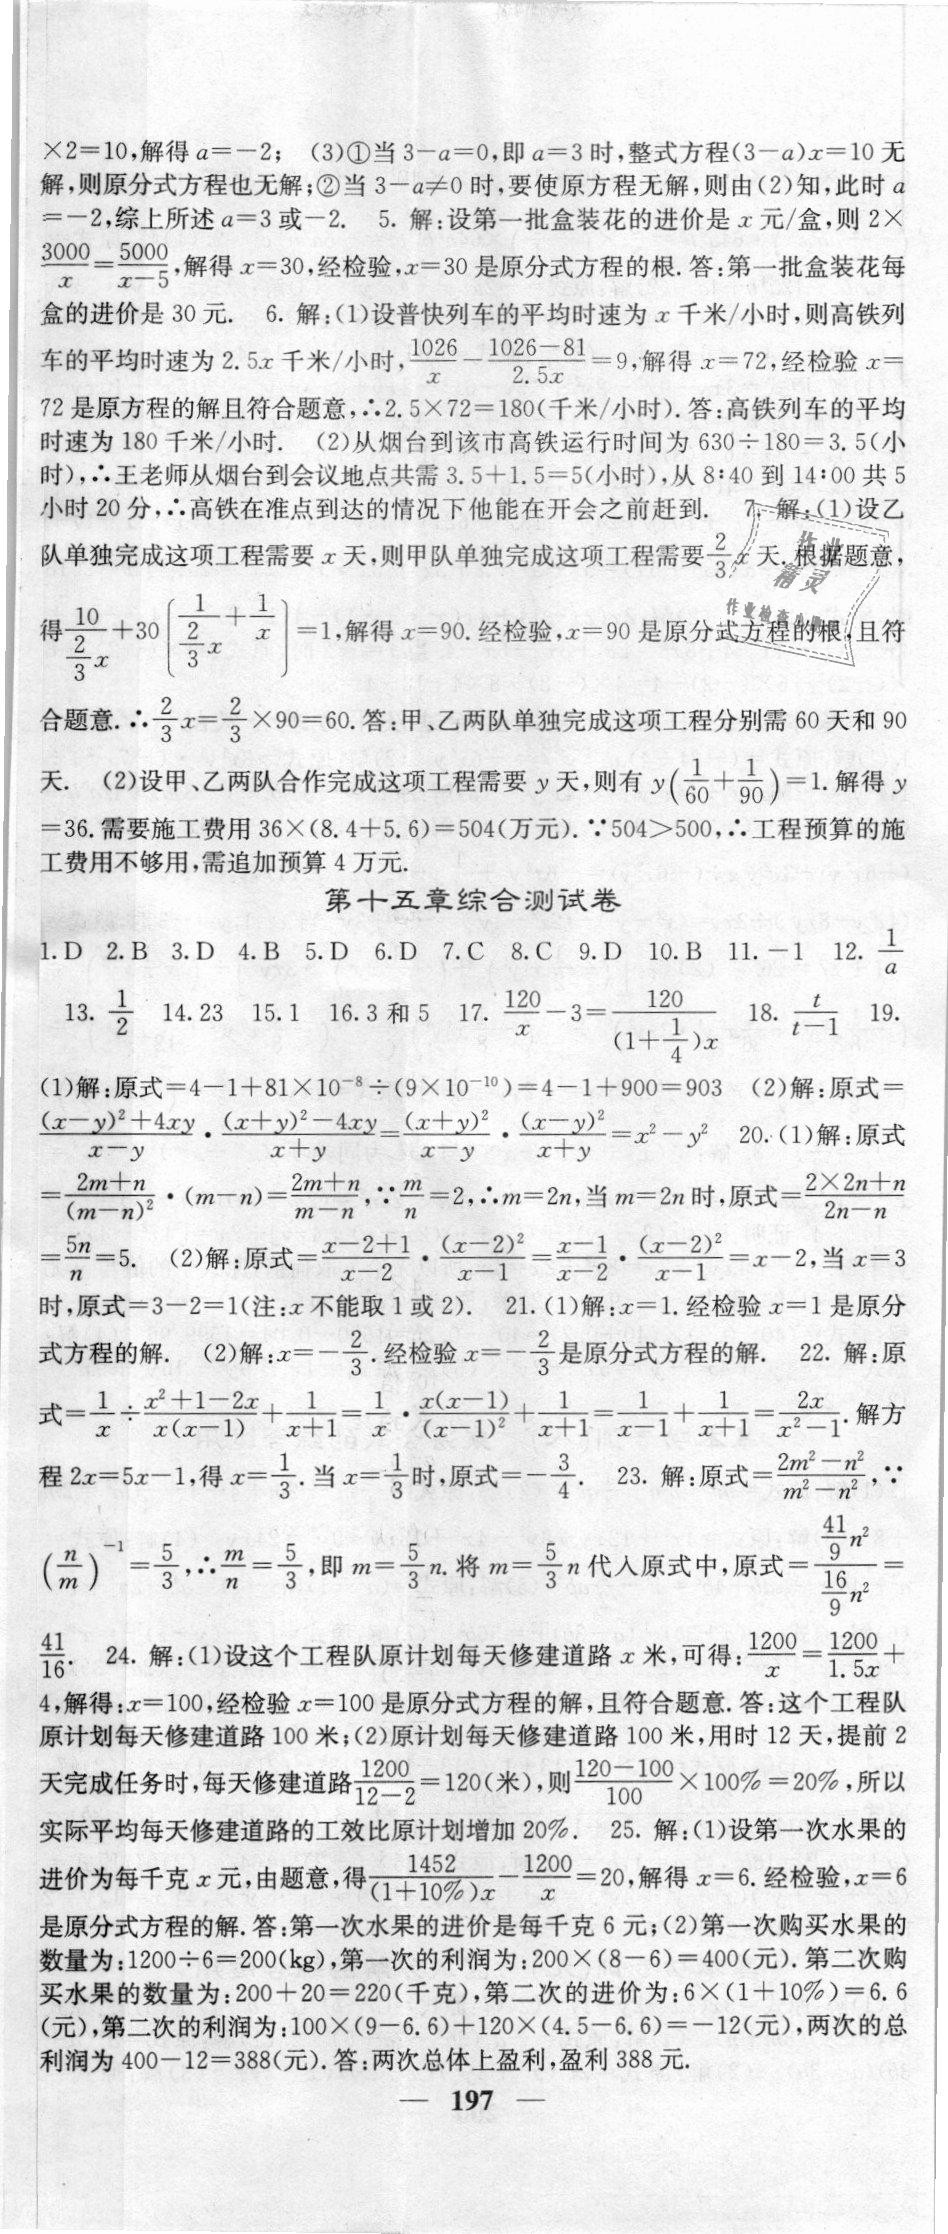 ×2=10,解得 a=-2; (3)①当 3-a=0,即 a=3 时,整式方程(3-a)x=10 无
解,则原分式方程也无解;②当 3-a≠0 时,要使原方程无解,则由(2)知,此时 a
=-2,综上所述 a=3 或-2. 5. 解:设第一批盒装花的进价是 x 元/盒,则 2×
3000/x=5000/(x-5),解得 x=30,经检验,x=30 是原分式方程的根.答:第一批盒装花每
盒的进价是 30 元. 6. 解:(1)设普快列车的平均时速为 x 千米/小时,则高铁列
车的平均时速为 2.5x 千米/小时,1026/x-(1026-81)/2.5x=9,解得 x=72,经检验 x=
72 是原方程的解且符合题意,∴2.5×72=180(千米/小时).答:高铁列车的平均
时速为 180 千米/小时. (2)从烟台到该市高铁运行时间为 630÷180=3.5(小
时),∴王老师从烟台到会议地点共需 3.5+1.5=5(小时),从 8:40 到 14:00 共 5
小时 20 分,∴高铁在准点到达的情况下他能在开会之前赶到. 7. 解:(1)设乙
队单独完成这项工程需要 x 天,则甲队单独完成这项工程需要 2/3 x 天.根据题意,
得 10/(2/3 x)+30(1/(2/3 x)+1/x)=1,解得 x=90.经检验,x=90 是原分式方程的根,且符
合题意.∴2/3 x=2/3×90=60.答:甲、乙两队单独完成这项工程分别需 60 天和 90
天. (2)设甲、乙两队合作完成这项工程需要 y 天,则有 y(1/60+1/90)=1.解得 y
=36.需要施工费用 36×(8.4+5.6)=504(万元).∵504>500,∴工程预算的施
工费用不够用,需追加预算 4 万元.
第十五章综合测试卷
1.D 2.B 3.D 4.B 5.D 6.D 7.C 8.C 9.D 10.B 11.-1 12. 1/a
13. 1/2 14.23 15.1 16.3 和 5 17. 120/x-3=120/((1+1/4)x) 18. t/(t-1) 19.
(1)解:原式=4-1+81×10⁻⁸÷(9×10⁻¹⁰)=4-1+900=903 (2)解:原式=
((x-y)²+4xy)/(x-y)·((x+y)²-4xy)/(x+y)=(x+y)²/(x-y)·(x-y)²/(x+y)=x²-y² 20.(1)解:原式
=(2m+n)/(m-n)²·(m-n)=(2m+n)/(m-n),∵m/n=2,∴m=2n,当 m=2n 时,原式=(2×2n+n)/(2n-n)
=5n/n=5. (2)解:原式=(x-2+1)/(x-2)·(x-2)²/(x-1)=(x-1)/(x-2)·(x-2)²/(x-1)=x-2,当 x=3
时,原式=3-2=1(注:x 不能取 1 或 2). 21.(1)解:x=1.经检验 x=1 是原分
式方程的解. (2)解:x=-2/3.经检验 x=-2/3是原分式方程的解. 22. 解:原
式=1/x÷(x²+1-2x)/(x(x-1))+1/(x+1)=1/x·x(x-1)/(x-1)²+1/(x+1)=1/(x-1)+1/(x+1)=2x/(x²-1).解方
程 2x=5x-1,得 x=1/3.当 x=1/3时,原式=-3/4. 23. 解:原式=(2m²-n²)/(m²-n²),∵
(n/m)⁻¹=5/3,∴m/n=5/3,即 m=5/3 n.将 m=5/3 n 代入原式中,原式=(41/9 n²)/(16/9 n²)=
41/16. 24. 解:(1)设这个工程队原计划每天修建道路 x 米,可得:1200/x=1200/1.5x+
4,解得:x=100,经检验 x=100 是原分式方程的解,且符合题意.答:这个工程队
原计划每天修建道路 100 米;(2)原计划每天修建道路 100 米,用时 12 天,提前 2
天完成任务时,每天修建道路1200/(12-2)=120(米),则(120-100)/100×100%=20%,所以
实际平均每天修建道路的工效比原计划增加 20%. 25. 解:(1)设第一次水果的
进价为每千克 x 元,由题意,得1452/((1+10%)x)-1200/x=20,解得 x=6.经检验,x=6
是原分式方程的解.答:第一次水果的进价是每千克 6 元;(2)第一次购买水果的
数量为:1200÷6=200(kg),第一次的利润为:200×(8-6)=400(元).第二次购
买水果的数量为:200+20=220(千克),第二次的进价为:6×(1+10%)=6.6
(元),第二次的利润为:100×(9-6.6)+120×(4.5-6.6)=-12(元),两次的总
利润为 400-12=388(元).答:两次总体上盈利,盈利 388 元.
— 197 —
作业
精灵